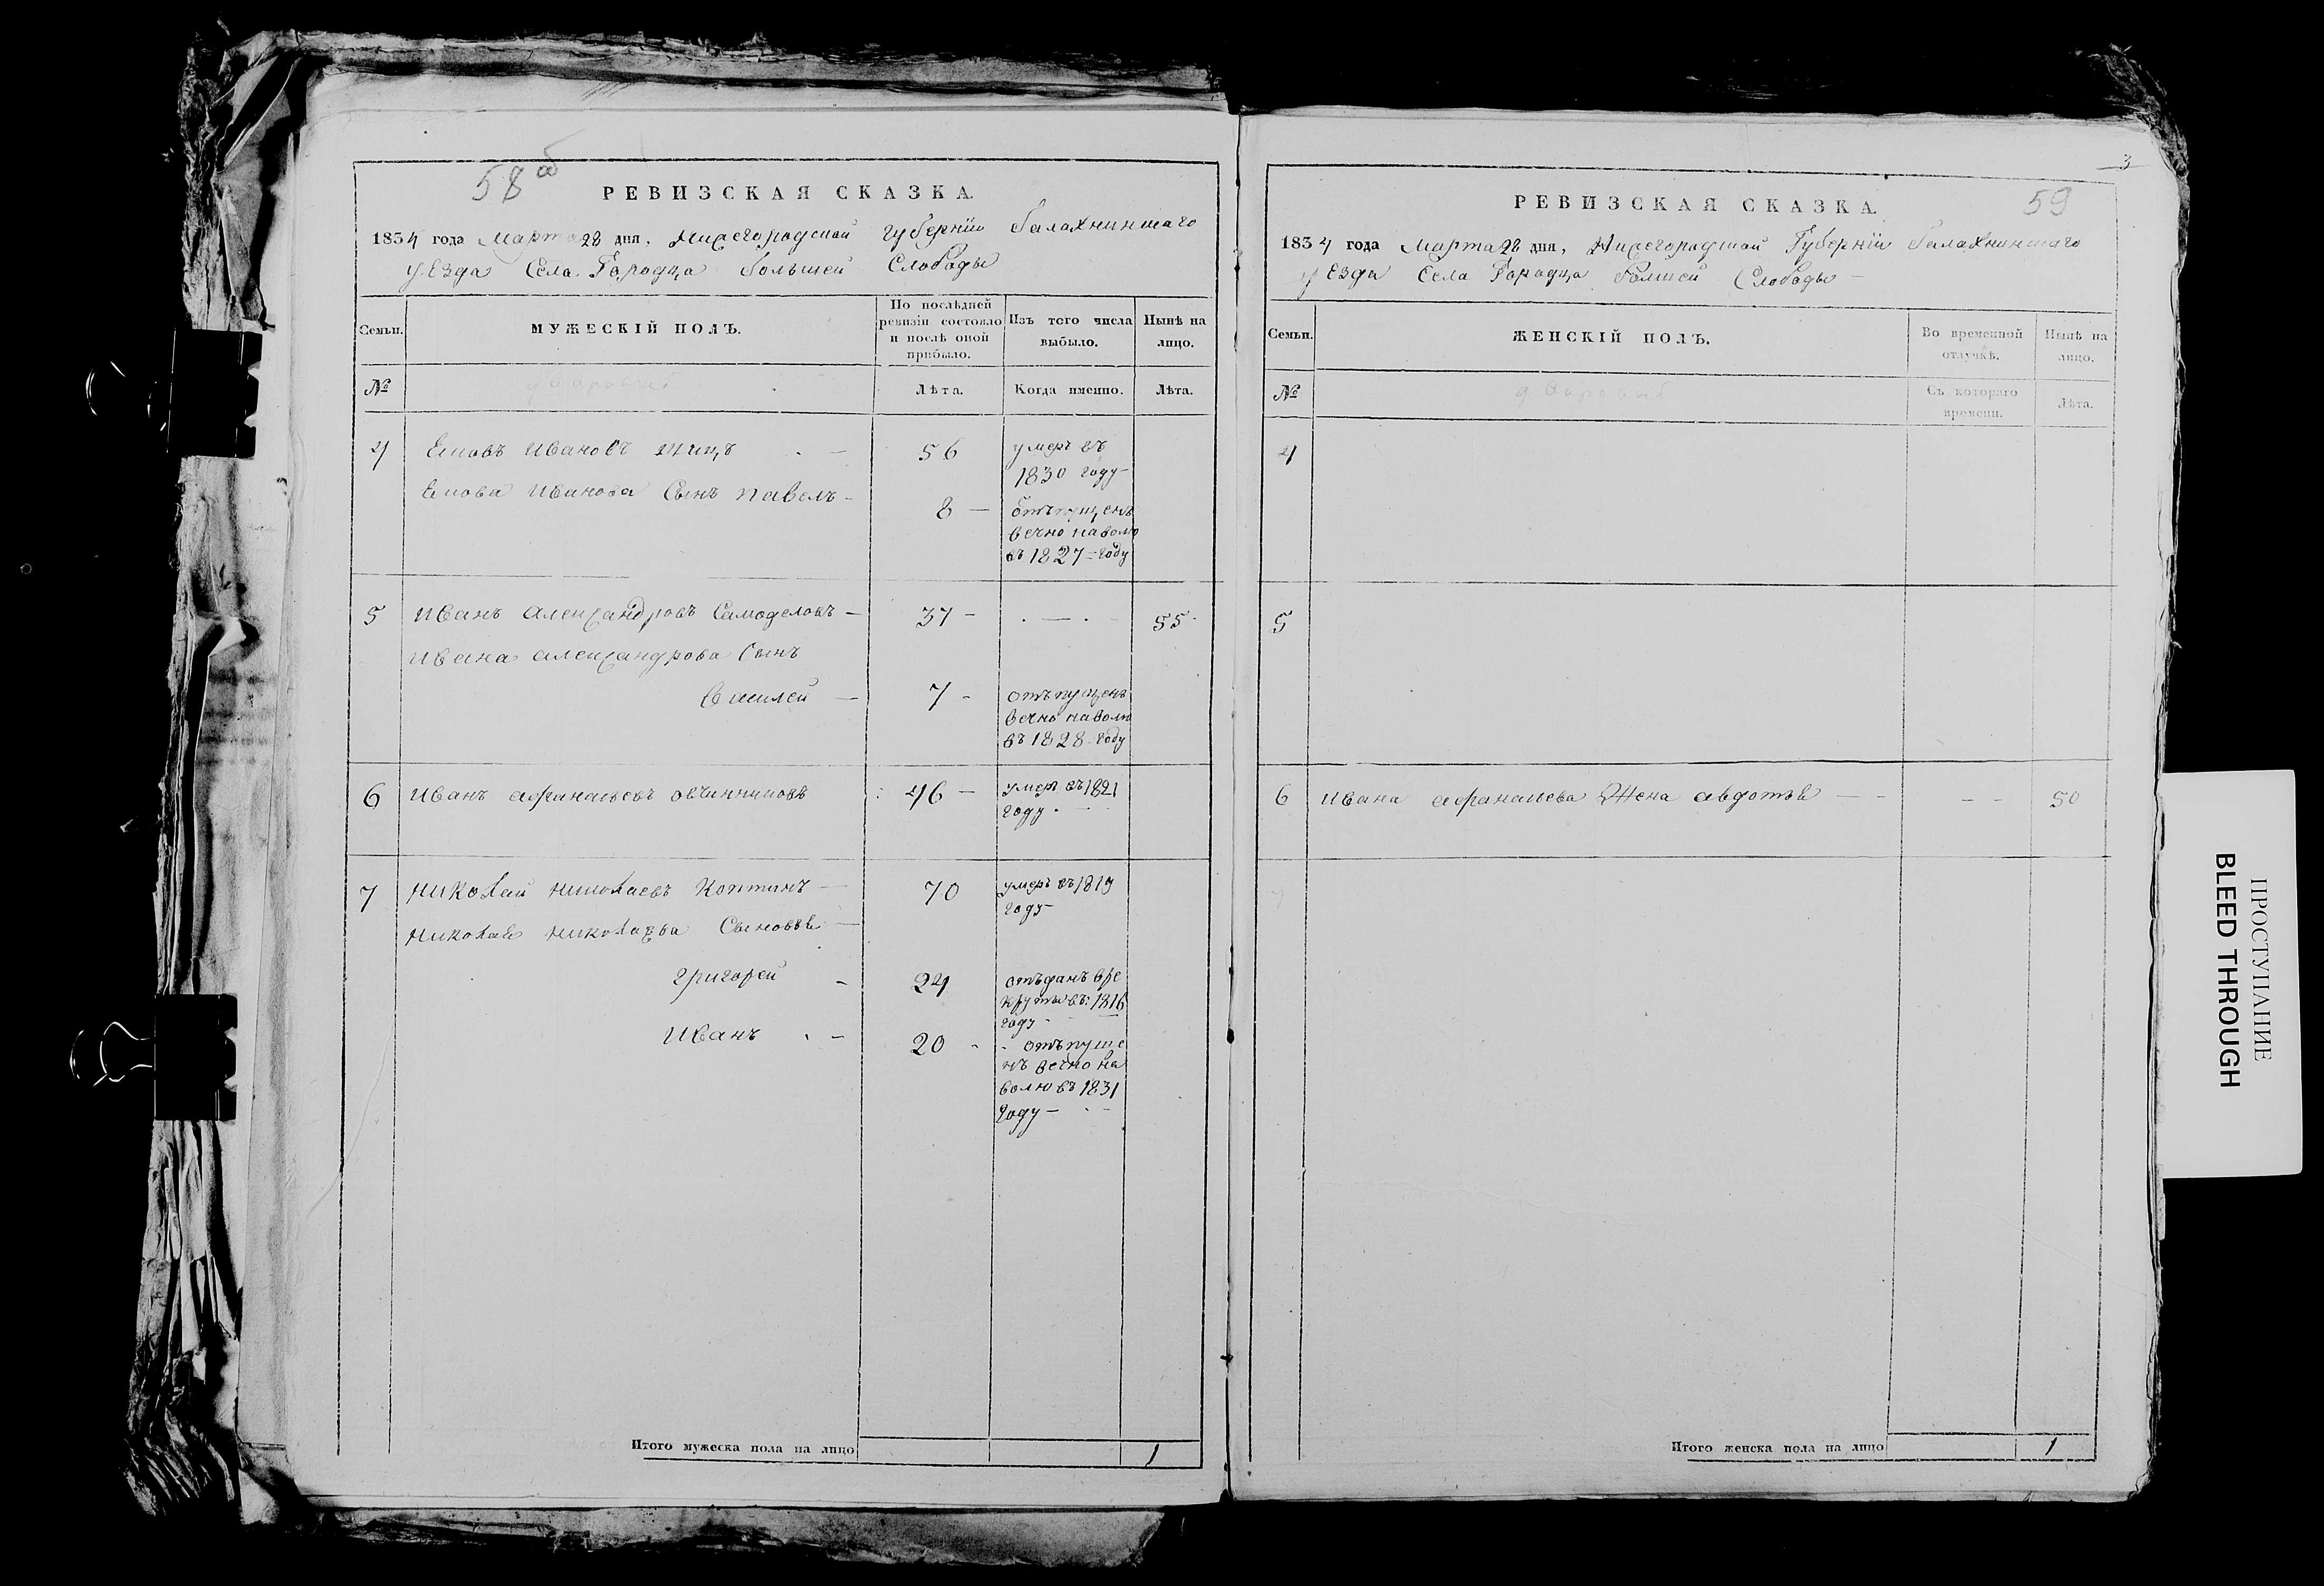 58 об
РЕВИЗСКАЯ СКАЗКА.
1834 года Марта 28 дня, Нижегородской губерніи балахнинскаго
уЕзда Села Городца большей Слободы
Семьи.
МУЖЕСКІЙ ПОЛЪ.
По послѣдней ревизіи состояло и послѣ оной прибыло.
Изъ того числа выбыло.
Нынѣ на лицо.
№
Лѣта.
Когда именно.
Лѣта.
4 Ивановъ 56 умеръ въ
1830 году
Иванова Сынъ павелъ 8 отпущенъ
вечно наволю
въ 1827 году
5 Иванъ александровъ Самоделовъ 37 55
Ивана александрова Сынъ
Василей 7 отъпущенъ
вечно наволю
въ 1828 году
6 Иванъ афанасьевъ овчинниковъ 46 умеръ въ 1821
году
7 николай николаевъ 70 умеръ въ 1819
году
николая николаева Сыновья
григорей 24 отъданъ вре
круты въ 1816
году
Иванъ 20 отъпуще
нъ вечно на
волю въ 1831
году
Итого мужеска пола на лицо 1
3
59
РЕВИЗСКАЯ СКАЗКА.
1834 года Марта 28 дня, Нижегородской Губерніи балахнинскаго
уЕзда Села Городца болшей Слободы
Семьи.
ЖЕНСКІЙ ПОЛЪ.
Во временной отлучкѣ.
Нынѣ на лицо.
№
Съ котораго времени.
Лѣта.
4
5
6 Ивана афанасьева Жена авдотья 50
Итого женска пола на лицо 1
ПРОСТУПАНИЕ
BLEED THROUGH